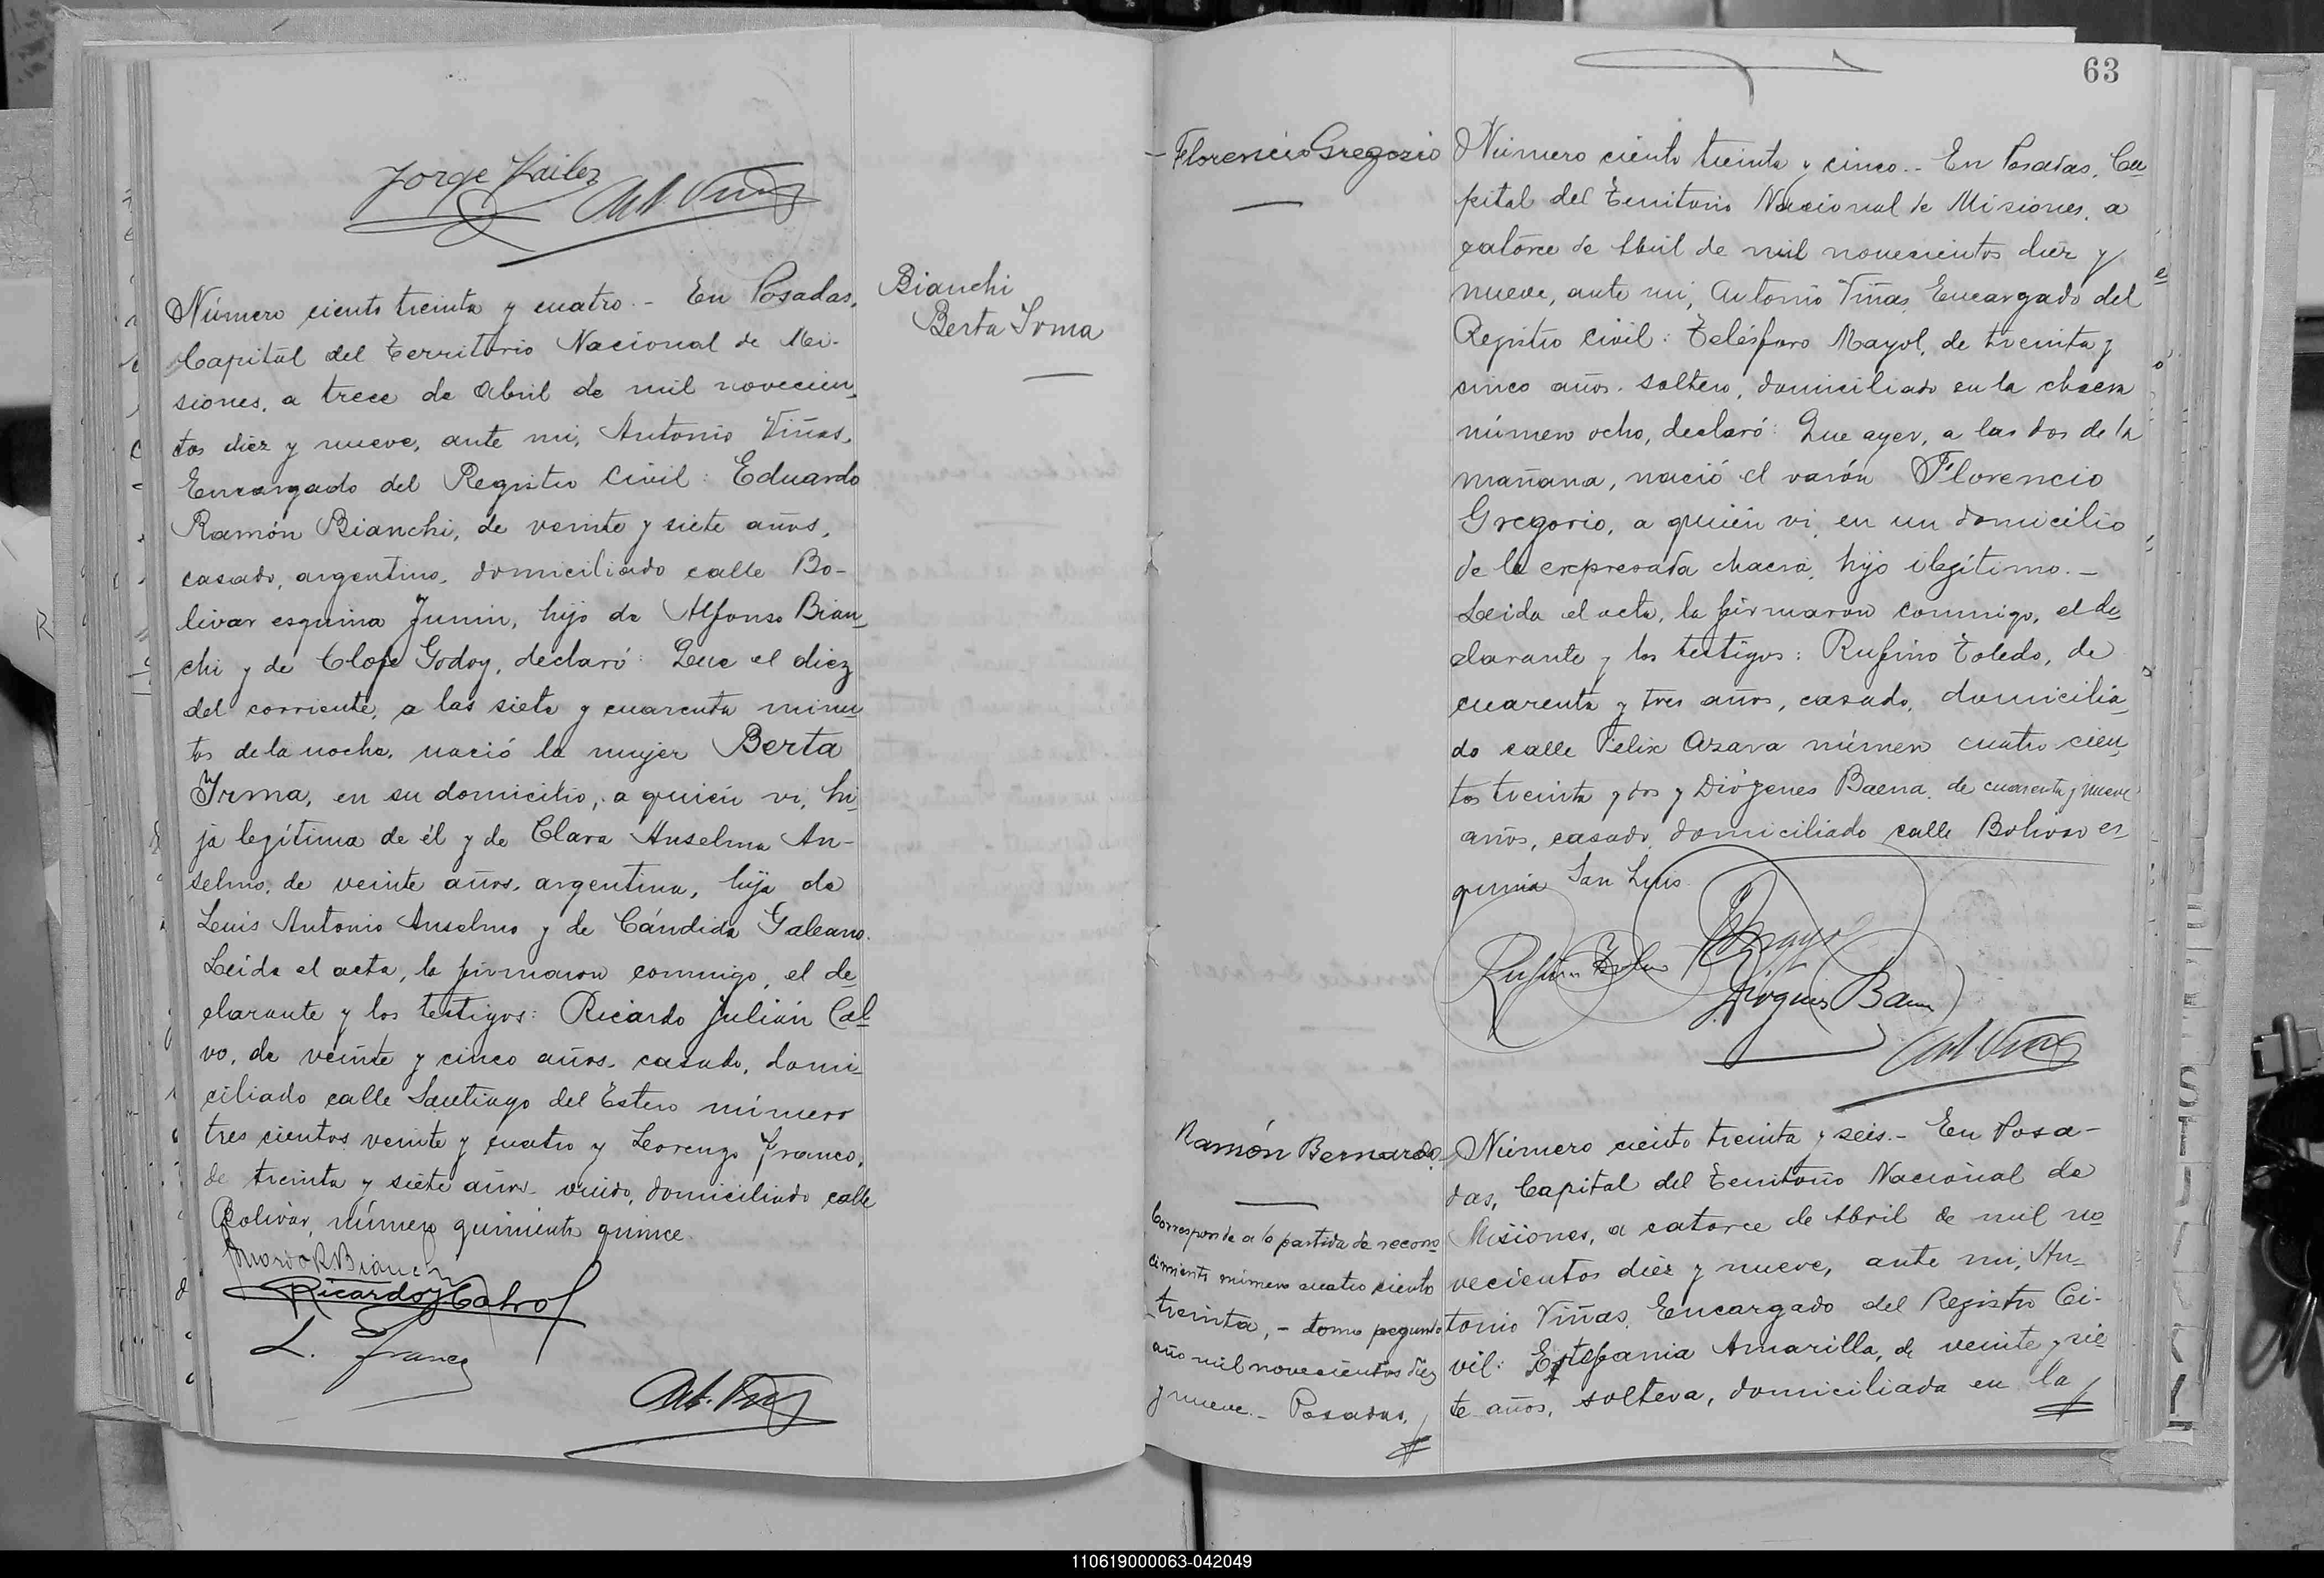 Jorge
Ant. Viñas
Número ciento treinta y cuatro. - En Posadas,
Capital del Territorio Nacional de Mi-
siones, a trece de Abril de mil novecien
tos diez y nueve, ante mi, Antonio Viñas,
Encargado del Registro Civil: Eduardo
Ramón Bianchi, de veinte y siete años,
casado, argentino, domiciliado calle Bo-
livar esquina Junin, hijo de Alfonso Bian
chi y de Clofe Godoy, declaró: Que el diez
del corriente, a las siete y cuarenta minu
tos de la noche, nació la mujer Berta
Irma, en su domicilio, a quien vi, hi
ja legítima de él y de Clara Anselma An-
selmo, de veinte años, argentina, hija de
Luis Antonio Anselmo y de Cándida Galeano.
Leida el acta, la firmaron conmigo, el de
clarante y los testigos: Ricardo Julián Cal
vo, de veinte y cinco años, casado, domi
ciliado calle Santiago del Estero número
tres cientos veinte y cuatro y Lorenzo Franco,
de treinta y siete años, viudo, domiciliado calle
Bolivar, número quinientos quince.
Eduardo R Bianchi
Ricardo J Calvo
L. Franco
Ant. Viñas
Bianchi
Berta Irma
63
- Florencio Gregorio
Número ciento treinta y cinco. - En Posadas, Ca
pital del Territorio Nacional de Misiones, a
catorce de Abril de mil novecientos diez y
nueve, ante mi, Antonio Viñas, Encargado del
Registro Civil: Telésforo Mayol, de treinta y
cinco años, soltero, domiciliado en la chacra
número ocho, declaró: Que ayer, a las dos de la
mañana, nació el varón Florencio
Gregorio, a quien vi, en un domicilio
de la expresada chacra, hijo ilegítimo. -
Leida el acta, la firmaron conmigo, el de
clarante y los testigos: Rufino Toledo, de
cuarenta y tres años, casado, domicilia
do calle Felix Azara número cuatro cien
tos treinta y dos y Diógenes Baena, de cuarenta y nueve
años, casado, domiciliado calle Bolivar es
quina San Luis.
Rufino Toledo
T Mayol
Diogenes Baena
Ant. Viñas
Ramón Bernardo.
Corresponde a la partida de recono
cimiento número cuatro ciento
treinta, - tomo segundo
año mil novecientos diez
y nueve. - Posadas.
Número ciento treinta y seis. - En Posa-
das, Capital del Territorio Nacional de
Misiones, a catorce de Abril de mil no
vecientos diez y nueve, ante mi, An-
tonio Viñas, Encargado del Registro Ci-
vil: Estefania Amarilla, de veinte y sie
te años, soltera, domiciliada en la
110619000063-042049